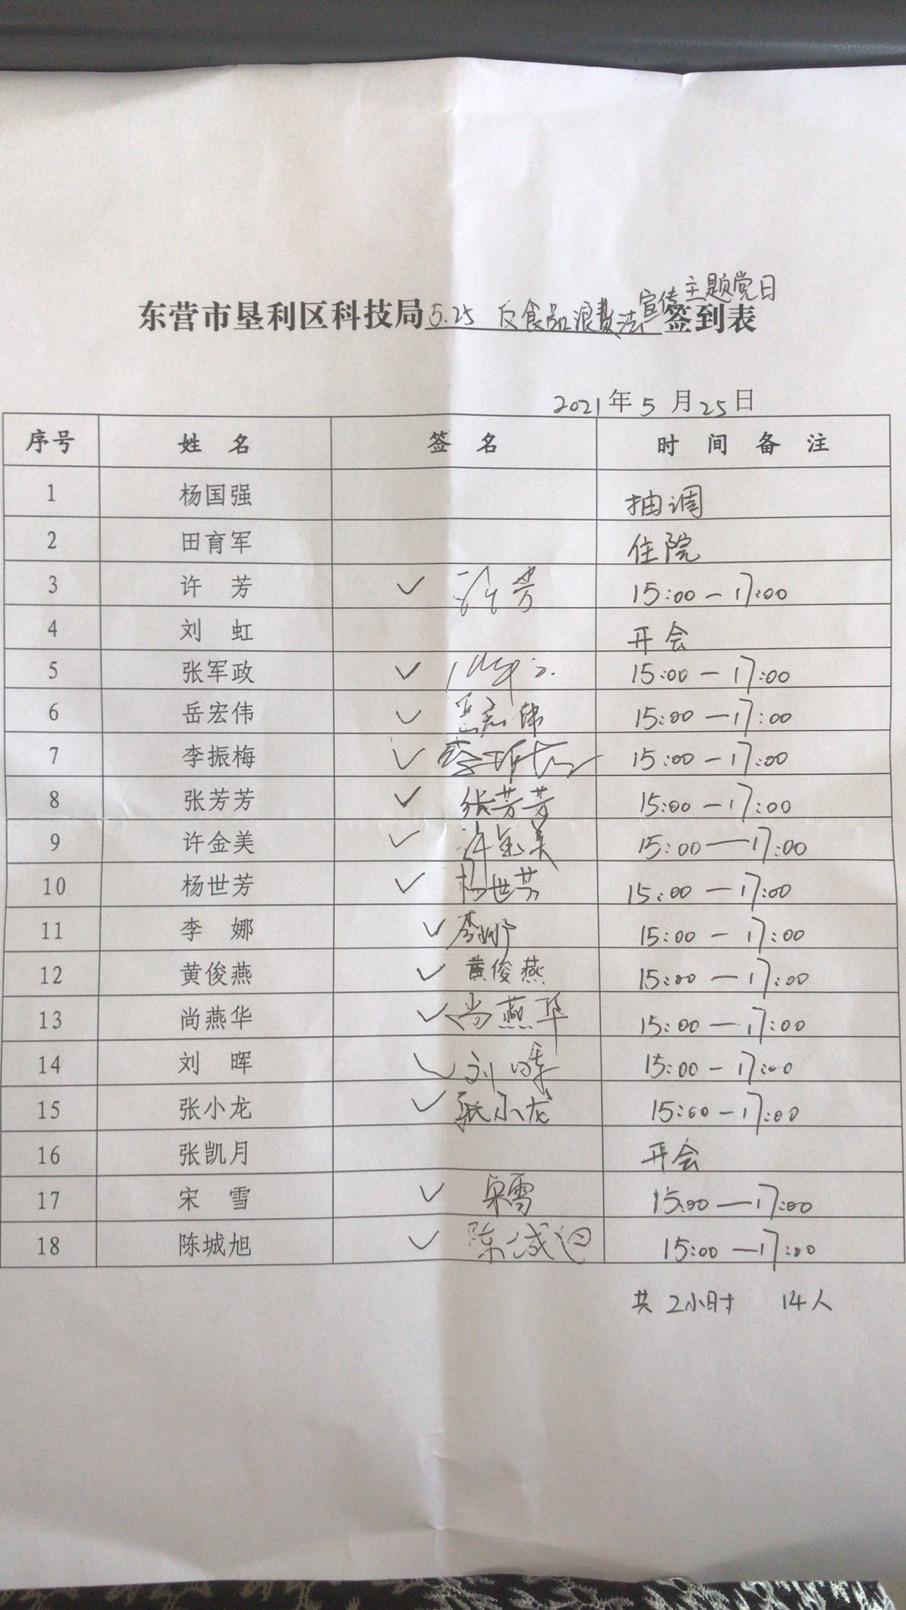 东营市垦利区科技局5.25 反食品浪费法宣传主题党日签到表
2021年5月25日
序号 姓 名 签 名 时 间 备 注
1 杨国强 抽调
2 田育军 住院
3 许 芳 ✓ 许芳 15:00-17:00
4 刘 虹 开会
5 张军政 ✓ 15:00-17:00
6 岳宏伟 ✓ 岳宏伟 15:00-17:00
7 李振梅 ✓ 15:00-17:00
8 张芳芳 ✓ 张芳芳 15:00-17:00
9 许金美 ✓ 许金美 15:00-17:00
10 杨世芳 ✓ 杨世芳 15:00-17:00
11 李 娜 ✓ 李娜 15:00-17:00
12 黄俊燕 ✓ 黄俊燕 15:00-17:00
13 尚燕华 ✓ 尚燕华 15:00-17:00
14 刘 晖 ✓ 刘晖 15:00-17:00
15 张小龙 ✓ 张小龙 15:00-17:00
16 张凯月 开会
17 宋 雪 ✓ 宋雪 15:00-17:00
18 陈城旭 ✓ 陈城旭 15:00-17:00
共2小时 14人